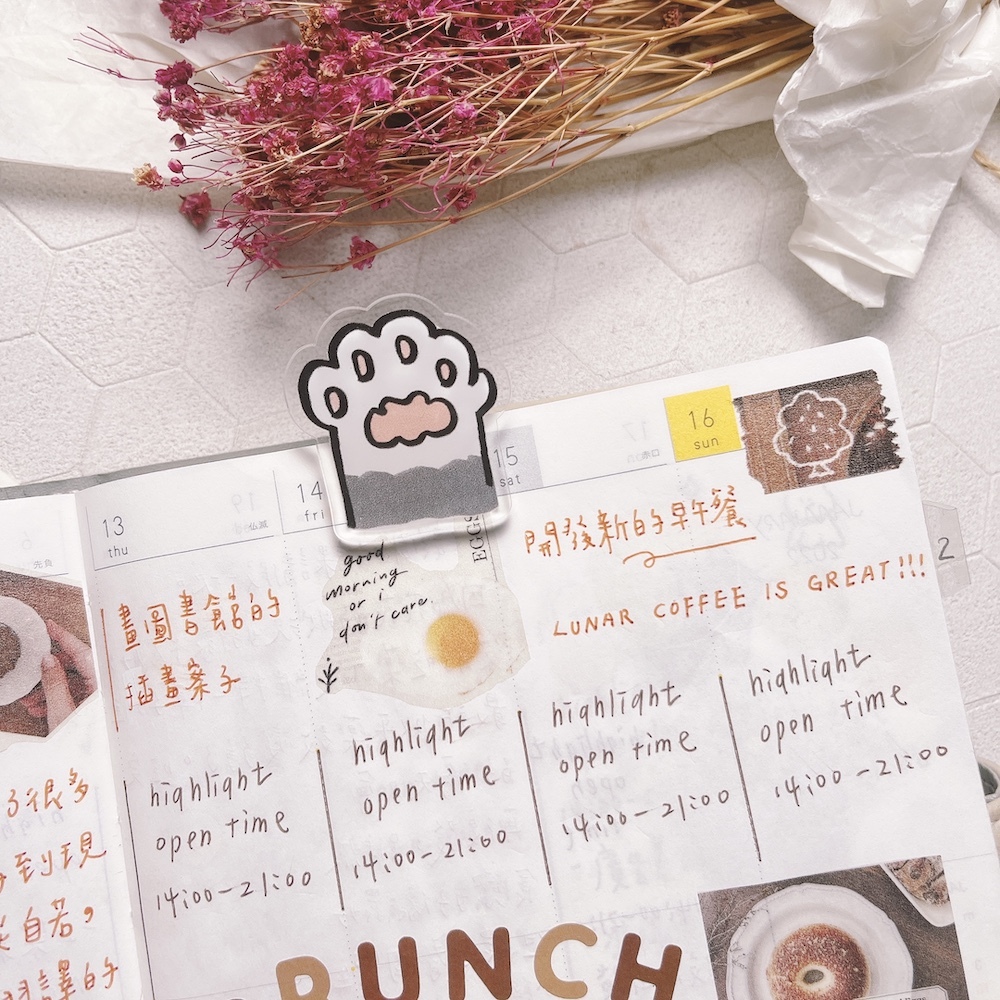 13
thu
14
fri
15
sat
16
sun
仏滅
先負
畫圖書館的
插畫案子
good
morning
or i
don't care.
EGGS
開發新的早午餐
LUNAR COFFEE IS GREAT!!!
2
highlight
open time
14:00-21:00
highlight
open time
14:00-21:00
highlight
open time
14:00-21:00
highlight
open time
14:00-21:00
了很多
到現
自若，
譯的
BRUNCH